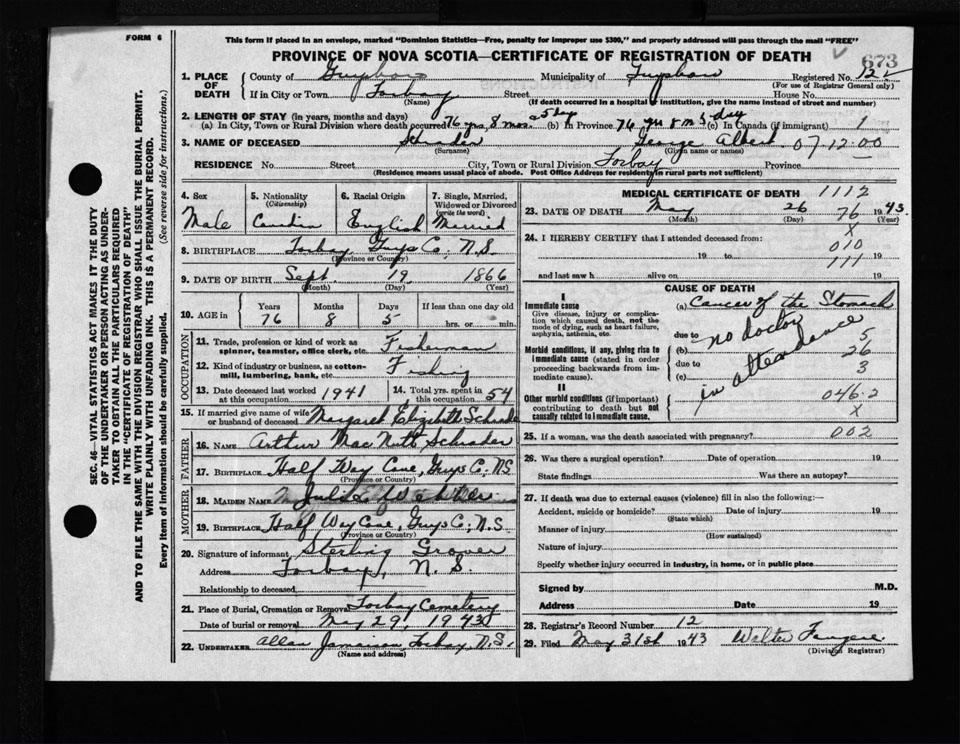 FORM 6
This form if placed in an envelope, marked "Dominion Statistics—Free, penalty for improper use $300," and properly addressed will pass through the mail "FREE"
PROVINCE OF NOVA SCOTIA—CERTIFICATE OF REGISTRATION OF DEATH
673
1. PLACE OF DEATH
County of Guysboro Municipality of Guysboro Registered No. 122
(For use of Registrar General only)
If in City or Town Torbay Street House No.
(Name) (If death occurred in a hospital or institution, give the name instead of street and number)
2. LENGTH OF STAY (in years, months and days)
(a) In City, Town or Rural Division where death occurred 76 yrs, 8 mos. 5 days (b) In Province 76 yrs 8 m 5 day (c) In Canada (if immigrant)
3. NAME OF DECEASED Schrader George Albert 07.12.00
(Surname) (Given name or names)
RESIDENCE No. Street City, Town or Rural Division Torbay Province
(Residence means usual place of abode. Post Office Address for residents in rural parts not sufficient)
4. Sex Male
5. Nationality (Citizenship)
6. Racial Origin English
7. Single, Married, Widowed or Divorced (write the word) Married
8. BIRTHPLACE Torbay, Guys Co., N.S.
(Province or Country)
9. DATE OF BIRTH Sept. 19 1866
(Month) (Day) (Year)
10. AGE in Years 76 Months 8 Days 5 If less than one day old hrs. or min.
OCCUPATION
11. Trade, profession or kind of work as spinner, teamster, office clerk, etc. Fisherman
12. Kind of industry or business, as cotton-mill, lumbering, bank, etc. Fishing
13. Date deceased last worked at this occupation 1941
14. Total yrs. spent in this occupation 54
15. If married give name of wife or husband of deceased Margaret Elizabeth Schrader
FATHER
16. NAME Arthur MacNutt Schrader
17. BIRTHPLACE Half Way Cove, Guys Co; N.S
(Province or Country)
MOTHER
18. MAIDEN NAME Julia
19. BIRTHPLACE Half Way Cove, Guys Co; N.S.
(Province or Country)
20. Signature of informant Sterling Grover
Address Torbay, N.S.
Relationship to deceased
21. Place of Burial, Cremation or Removal Torbay Cemetery
Date of burial or removal May 29, 1943
22. UNDERTAKER Allan Torbay, N.S.
(Name and address)
MEDICAL CERTIFICATE OF DEATH 1112
23. DATE OF DEATH May 26 1943
(Month) (Day) 76 (Year)
X
24. I HEREBY CERTIFY that I attended deceased from:
010
19 to 19
111
and last saw h alive on 19
CAUSE OF DEATH
I
Immediate cause
Give disease, injury or complication which caused death, not the mode of dying, such as heart failure, asphyxia, asthenia, etc.
(a) Cancer of the Stomach
due to
Morbid conditions, if any, giving rise to immediate cause (stated in order proceeding backwards from immediate cause).
(b)
due to
(c)
no doctor
in attendance
5
26
3
II
Other morbid conditions (if important) contributing to death but not causally related to immediate cause.
046.2
X
25. If a woman, was the death associated with pregnancy? 002
26. Was there a surgical operation? Date of operation 19
State findings Was there an autopsy?
27. If death was due to external causes (violence) fill in also the following:—
Accident, suicide or homicide? Date of injury 19
(State which)
Manner of injury
(How sustained)
Nature of injury
Specify whether injury occurred in industry, in home, or in public place
Signed by M.D.
Address Date 19
28. Registrar's Record Number 12
29. Filed May 31st 1943 Walter
(Division Registrar)
SEC. 46—VITAL STATISTICS ACT MAKES IT THE DUTY
OF THE UNDERTAKER OR PERSON ACTING AS UNDER-
TAKER TO OBTAIN ALL THE PARTICULARS REQUIRED
IN THE "CERTIFICATE OF REGISTRATION OF DEATH"
AND TO FILE THE SAME WITH THE DIVISION REGISTRAR WHO SHALL ISSUE THE BURIAL PERMIT.
WRITE PLAINLY WITH UNFADING INK. THIS IS A PERMANENT RECORD.
Every item of information should be carefully supplied. (See reverse side for instructions.)